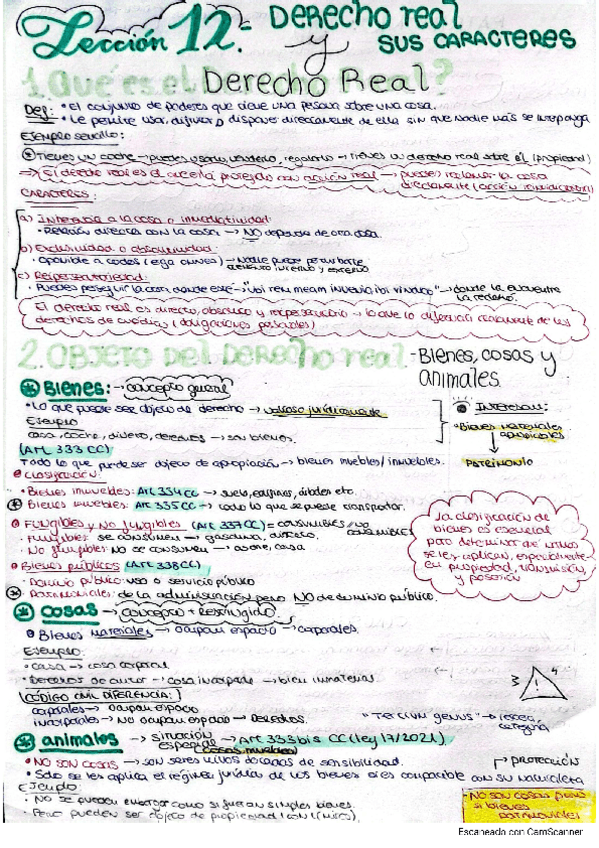 Lección 12:- Derecho real
y SUS CARACTERES
1. Qué es el Derecho Real?
Def: • El conjunto de poderes que tiene una persona sobre una cosa.
• Le permite usar, disfrutar o disponer directamente de ella sin que nadie más se interponga
Ejemplo sencillo:
Tienes un coche → puedes usarlo, venderlo, regalarlo → tienes un derecho real sobre él (propiedad)
⇒ El derecho real está protegido con acción real → puedes reclamar la cosa
directamente (acción reivindicatoria)
CARACTERES:
a) Inherencia a la cosa o inmediatividad:
• Relación directa con la cosa → NO depende de otra cosa.
b) Exclusividad o absolutividad:
• Oponible a todos (erga omnes) → Nadie puede perturbarte
elemento interno y externo
c) Reipersecutoriedad:
• Puedes perseguir la cosa donde esté → "ubi rem meam invenio ibi vindico" → donde la encuentre
la reclamo.
El derecho real es directo, absoluto y reipersecutorio → lo que lo diferencia claramente de los
derechos de crédito (obligaciones personales)
2. OBJETO del Derecho real - Bienes, cosas y
animales.
BIENES: → concepto general
• Lo que puede ser objeto de derecho → valioso jurídicamente
Ejemplo
casa, coche, dinero, derechos → son bienes.
INTERESAN:
• Bienes materiales
apropiables
PATRIMONIO
(Art. 333 CC)
Todo lo que puede ser objeto de apropiación → bienes muebles/inmuebles.
Clasificación:
• Bienes inmuebles: Art 334 CC → suelo, edificios, árboles etc.
Bienes muebles: Art 335 CC → todo lo que se puede transportar.
Fungibles y No fungibles (Art 337 CC) = consumibles/no
consumibles
• Fungibles: se consumen → gasolina, dinero.
• No fungibles: No se consumen → coche, casa
Bienes públicos (Art 338 CC)
• Dominio público: uso o servicio público
Patrimoniales: de la administración pero NO de dominio público.
La clasificación de
bienes es esencial
para determinar
se les aplican, especialmente
en propiedad, transmisión,
y posesión
COSAS → Concepto + Restringido
Bienes materiales → ocupan espacio → corporales.
Ejemplo:
• casa → cosa corporal
• Derechos de autor → cosa incorporal → bien inmaterial
[CÓDIGO CIVIL DIFERENCIA:]
corporales → ocupan espacio
incorporales → No ocupan espacio → Derechos.
3 1 4
"Tertium genus" → tercera
categoría
animales → situación
especial → Art 333 bis CC (ley 17/2021)
(cosas muebles)
PROTECCIÓN
• NO SON COSAS → son seres vivos dotados de sensibilidad.
• Sólo se les aplica el régimen jurídico de los bienes si es compatible con su naturaleza
Ejemplo:
• No se pueden embargar como si fueran simples bienes.
• Pero pueden ser objeto de propiedad
- NO SON COSAS pero
si bienes
patrimoniales
Escaneado con CamScanner